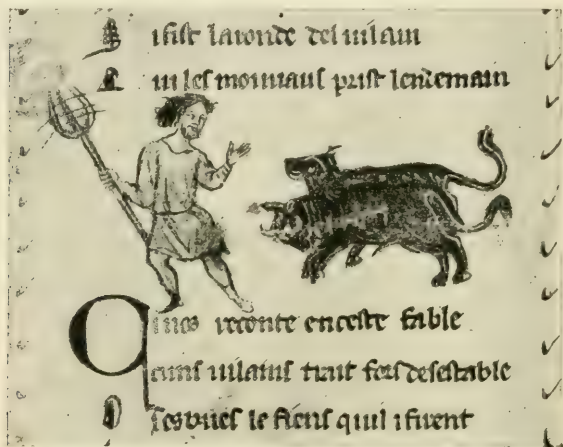 S ifist laronde del uilain
Q ui les moinnaus prist lendemain
Q inos reconte enceste fable
cuns uilains trait fors desestable
O sesbues le fiens quil ifirent